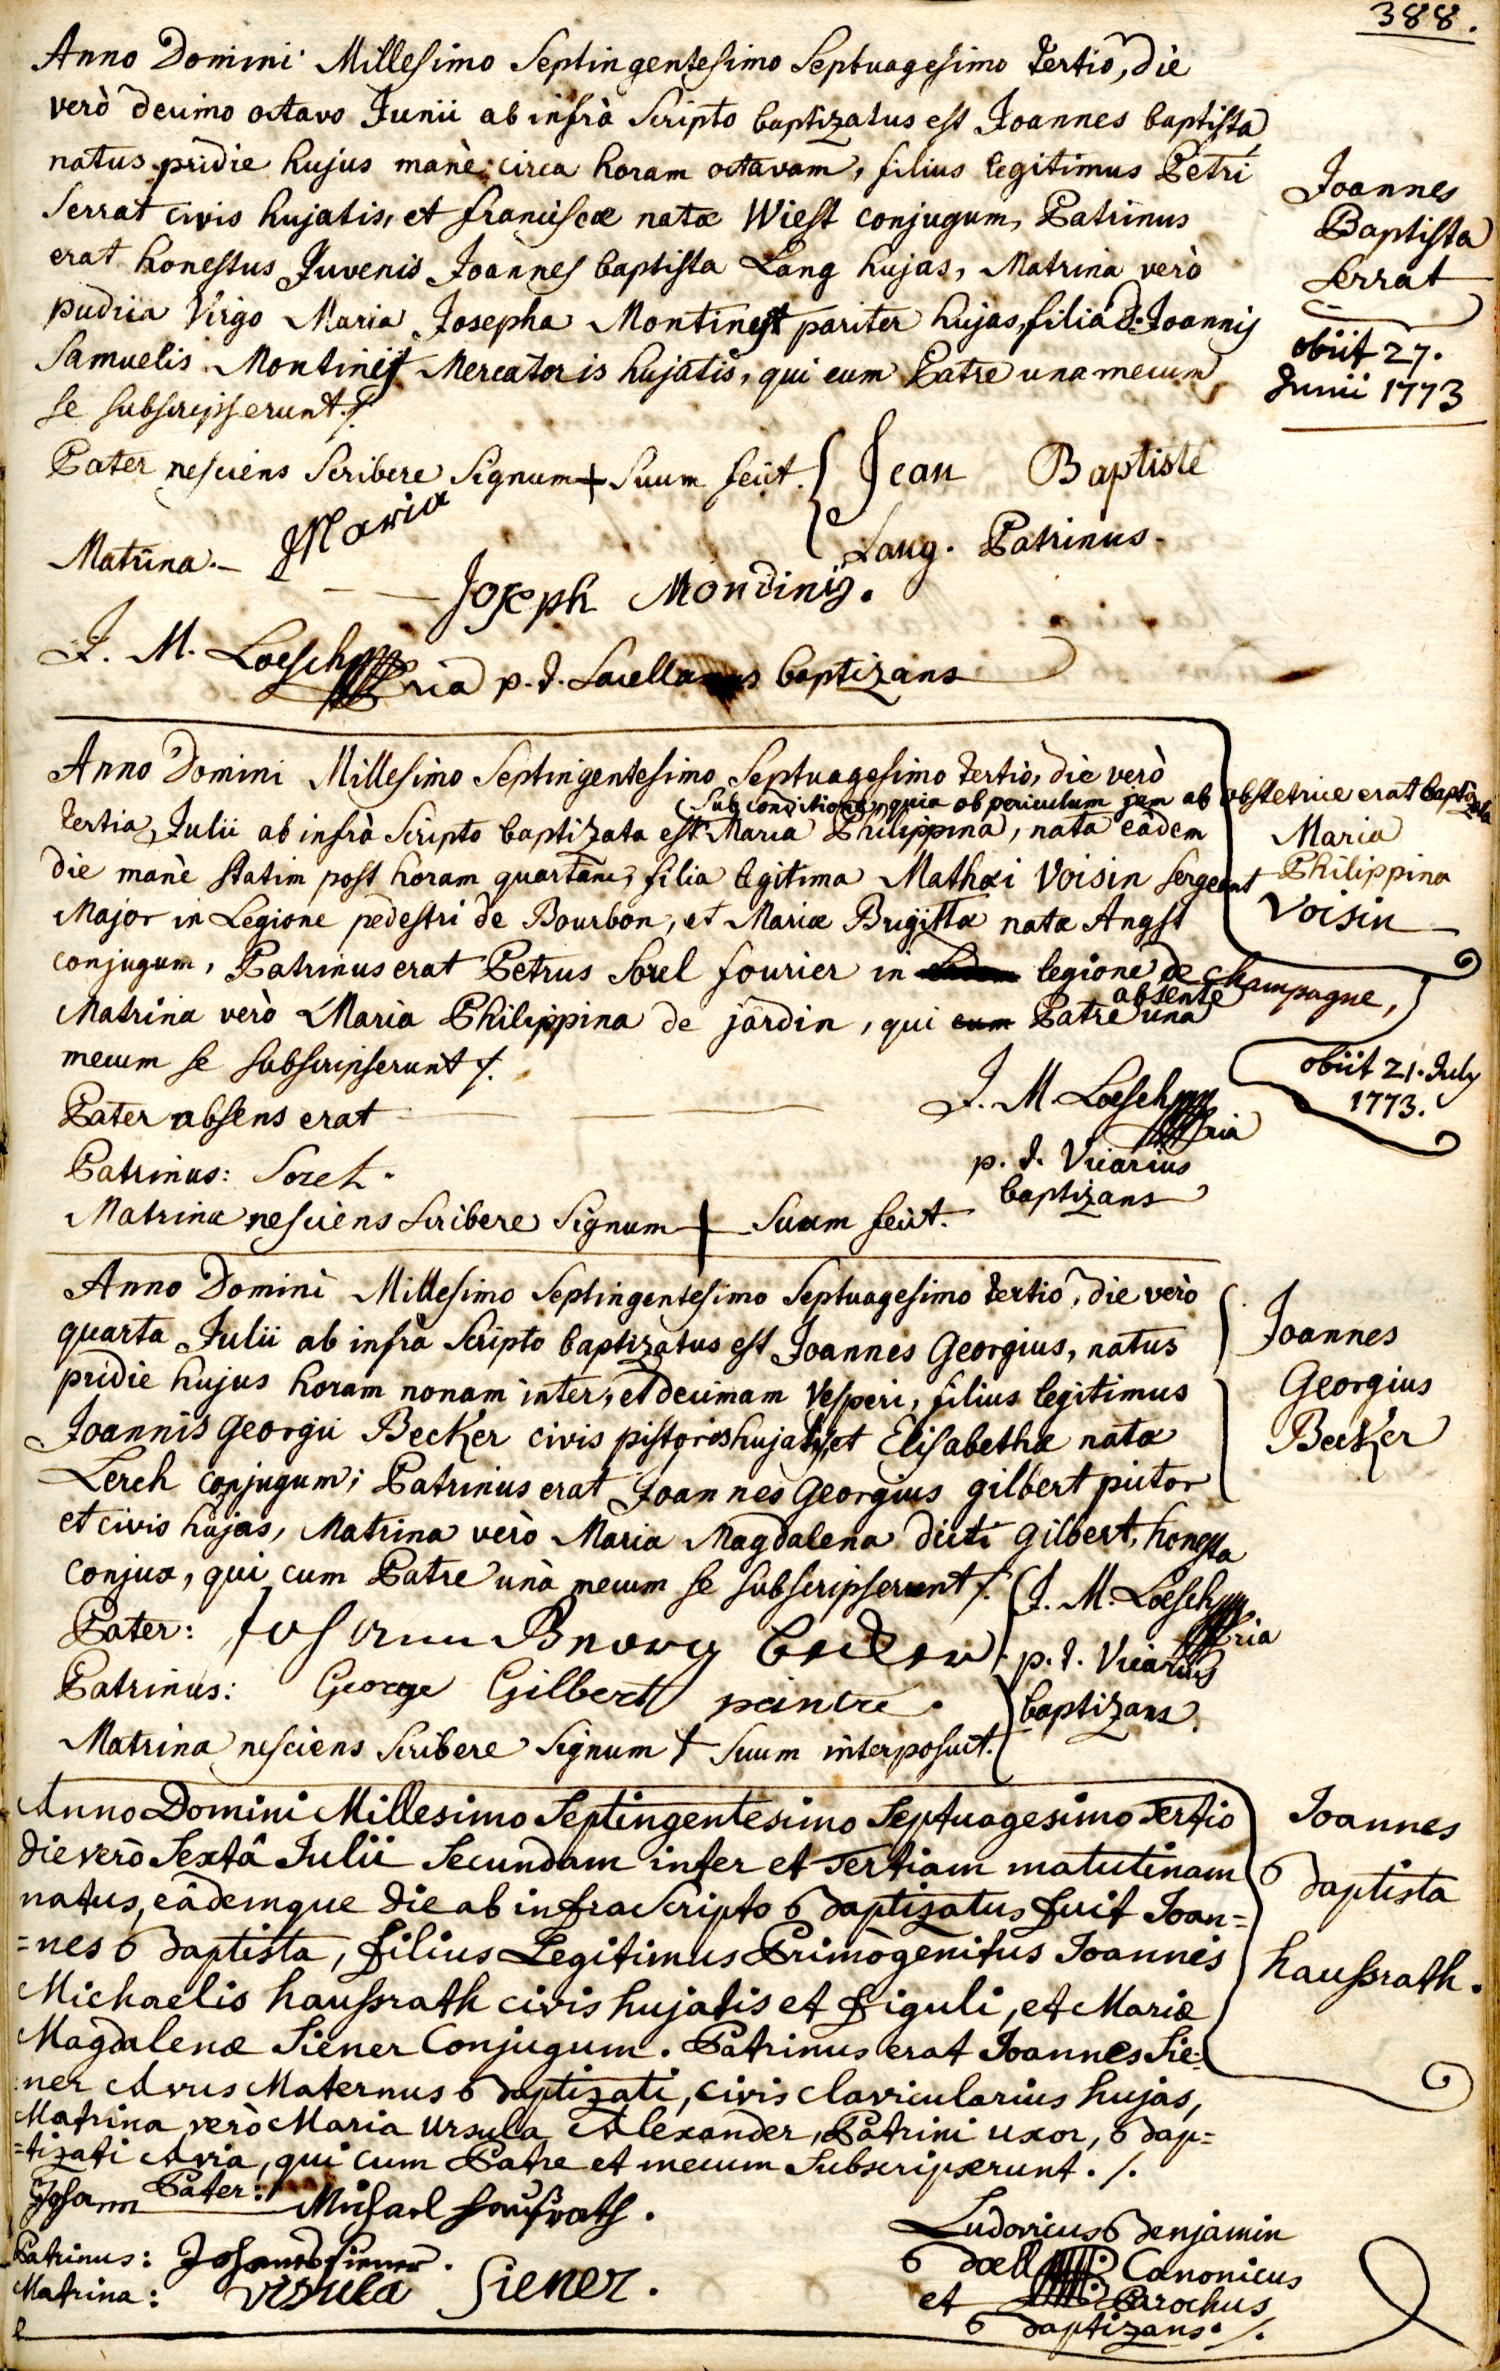 388.
Anno Domini Millesimo Septingentesimo Septuagesimo tertio, die
verò decimo octavo Junii ab infrà scripto baptizatus est Joannes baptista
natus pridie hujus manè circa horam octavam, filius legitimus Petri
Serrat civis hujatis, et franciscæ natæ Wiest conjugum, Patrinus
erat honestus Juvenis Joannes baptista Lang hujas, Matrina verò
pudica Virgo Maria Josepha pariter hujas, filia D. Joannis
Samuelis Mercatoris hujatis, qui cum Patre una mecum
se subscripserunt ./.
Joannes
Baptista
Serrat
obiit 27.
Junii 1773
Pater nesciens scribere Signum + Suum fecit. Jean Baptiste
Lang. Patrinus.
Matrina. Maria
Joseph Mondinig.
J. M. Loesch ria p. t. Sacellanus baptizans
Anno Domini Millesimo Septingentesimo Septuagesimo tertio, die verò
(Sub conditione, quia ob periculum jam ab obstetrice erat baptizata
tertia Julii ab infrà scripto baptizata est Maria Philippina, nata eâdem
die manè statim post horam quartam, filia legitima Mathæi Voisin Sergeant
Major in Legione pedestri de Bourbon, et Mariæ Brigittæ natæ Angst
conjugum, Patrinus erat Petrus Sorel fourier in legione de Champagne,
Matrina verò Maria Philippina de jardin, qui cum Patre absente una
mecum se subscripserunt ./.
Maria
Philippina
Voisin
obiit 21. July
1773.
Pater absens erat
J. M. Loesch ria
Patrinus: Sorel.
p. t. Vicarius
baptizans
Matrina nesciens scribere Signum + Suum fecit.
Anno Domini Millesimo Septingentesimo Septuagesimo tertio, die verò
quarta Julii ab infrà scripto baptizatus est Joannes Georgius, natus
pridie hujus horam nonam inter, et decimam Vesperi, filius legitimus
Joannis Georgii Becker civis pistoris hujatis, et Elisabethæ natæ
Lerch conjugum; Patrinus erat Joannes Georgius gilbert pictor
et civis hujas, Matrina verò Maria Magdalena dicti gilbert, honesta
conjux, qui cum Patre unà mecum se subscripserunt ./.
Joannes
Georgius
Becker
J. M. Loesch ria
p. t. Vicarius
baptizans.
Pater: Becker
Patrinus: George Gilbert peintre.
Matrina nesciens scribere Signum + Suum interposuit.
Anno Domini Millesimo Septingentesimo Septuagesimo Tertio
die verò Sextâ Julii Secundam inter et Tertiam matutinam
natus, eâdemque die ab infra Scripto Baptizatus fuit Joan=
=nes Baptista, filius Legitimus Primògenitus Joannis
Michaelis haussrath civis hujatis et figuli, et Mariæ
Magdalenæ Siener Conjugum. Patrinus erat Joannes Sie=
ner Avus Maternus Baptizati, civis clavicularius hujas,
Matrina verò Maria Ursula Alexander, Patrini uxor, Bap=
=tizati Avia, qui cum Patre et mecum Subscripserunt. ./.
Joannes
Baptista
haussrath.
Pater: Johann Michael Haußrath.
Patrinus: Johannes Siener.
Matrina: Ursula Siener.
Ludovicus Benjamin
Bœll Canonicus
et Parochus
Baptizans. ./.